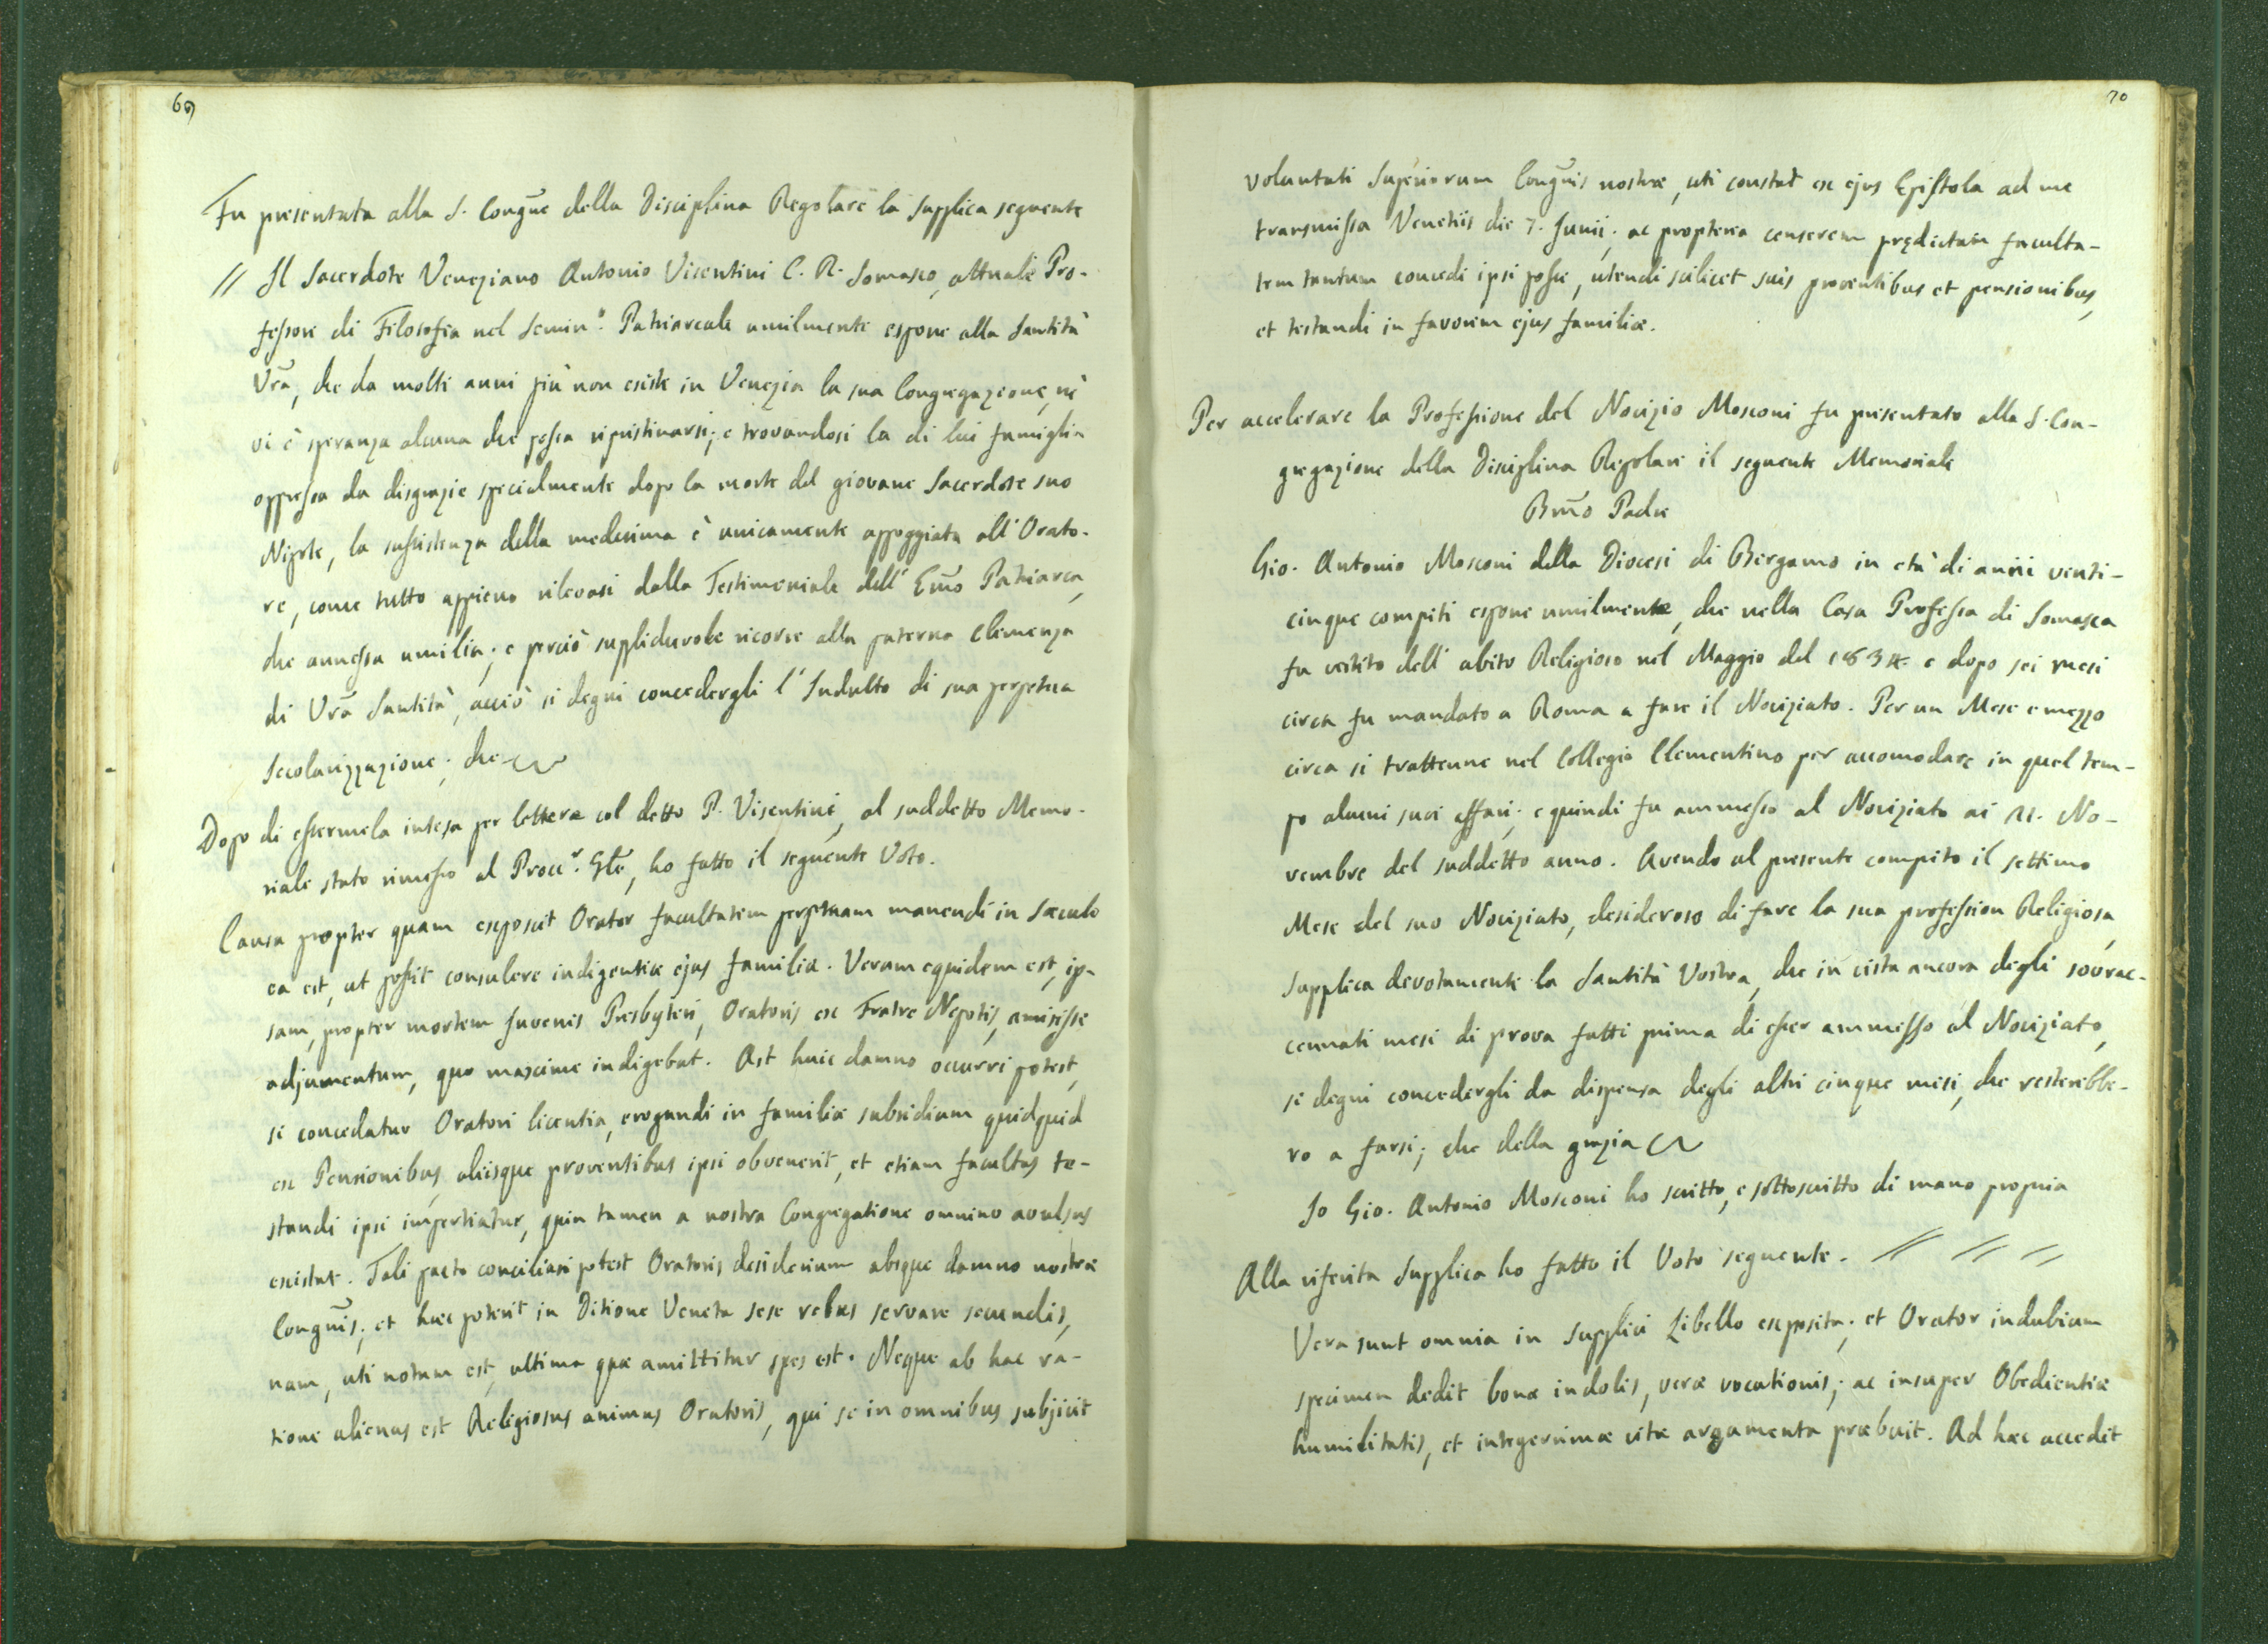 69
Fu presentata alla S. Congñe della Disciplina Regolare la supplica seguente
// Il Sacerdote Veneziano Antonio Visentini C. R. Somasco, attuale Pro-
fessore di Filosofia nel Semin.º Patriarcale umilmente espone alla Santità
Vrã, che da molti anni più non esiste in Venezia la sua Congregazione, nè
vi è speranza alcuna che possa ripristinarsi; e trovandosi la di lui famiglia
oppressa da disgrazie specialmente dopo la morte del giovane Sacerdote suo
Nipote, la sussistenza della medesima è unicamente appoggiata all' Orato-
re, come tutto appieno rilevasi dalla Testimoniale dell' Emõ Patriarca,
che annessa umilia; e perciò supplichevole ricorre alla paterna Clemenza
di Vrã Santità, acciò si degni concedergli l' Indulto di sua perpetua
Secolarizzazione; che
Dopo di essermela intesa per lettera col detto P. Visentini, al suddetto Memo-
riale stato rimesso al Proc.r Glẽ, ho fatto il seguente Voto.
Causa propter quam exposcit Orator facultatem perpetuam manendi in Sæculo
ea est, ut possit consulere indigentiæ ejus familiæ. Verum equidem est, ip-
sam, propter mortem Juvenis Presbyteri, Oratoris ex Fratre Nepotis, amisisse
adjumentum, quo maxime indigebat. Ast huic damno occurri potest,
si concedatur Oratori licentia, erogandi in familiæ subsidium quidquid
ex Pensionibus, aliisque proventibus ipsi obvenerit, et etiam facultas te-
standi ipsi impertiatur, quin tamen a nostra Congregatione omnino avulsus
existat. Tali pacto conciliari potest Oratoris desiderium absque damno nostræ
Congñis; et hæc poterit in Ditione Veneta sese rebus servare secundis,
nam, uti notum est, ultima quæ amittitur spes est. Neque ab hac ra-
tione alienus est Religiosus animus Oratoris, qui se in omnibus subjicit
70
voluntati Superiorum Congñis nostræ, uti constat ex ejus Epistola ad me
transmissa Venetiis die 7. Junii; ac propterea censerem prędictam faculta-
tem tantum concedi ipsi posse, utendi scilicet suis proventibus et pensionibus,
et testandi in favorem ejus familiæ.
Per accelerare la Professione del Novizio Mosconi fu presentato alla S. Con-
gregazione della Disciplina Regolare il seguente Memoriale
Bmõ Padre
Gio. Antonio Mosconi della Diocesi di Bergamo in età di anni venti-
cinque compiti espone umilmente, che nella Casa Professa di Somasca
fu vestito dell' abito Religioso nel Maggio del 1834. e dopo sei mesi
circa fu mandato a Roma a fare il Noviziato. Per un Mese e mezzo
circa si trattenne nel Collegio Clementino per accomodare in quel tem-
po alcuni suoi affari; e quindi fu ammesso al Noviziato ai 21. No-
vembre del suddetto anno. Avendo al presente compito il settimo
Mese del suo Noviziato, desideroso di fare la sua profession Religiosa,
supplica devotamente la Santità Vostra, che in vista ancora degli sovrac-
cennati mesi di prova fatti prima di esser ammesso al Noviziato,
si degni concedergli da dispensa degli altri cinque mesi, che resterebbe-
ro a farsi; che della grazia
Io Gio. Antonio Mosconi ho scritto, e sottoscritto di mano propria
Alla riferita Supplica ho fatto il Voto seguente. // // //
Vera sunt omnia in supplici Libello exposita; et Orator indubium
specimen dedit bonæ indolis, veræ vocationis; ac insuper Obedientiæ
humilitatis, et integerrimæ vitæ argumenta præbuit. Ad hæc accedit